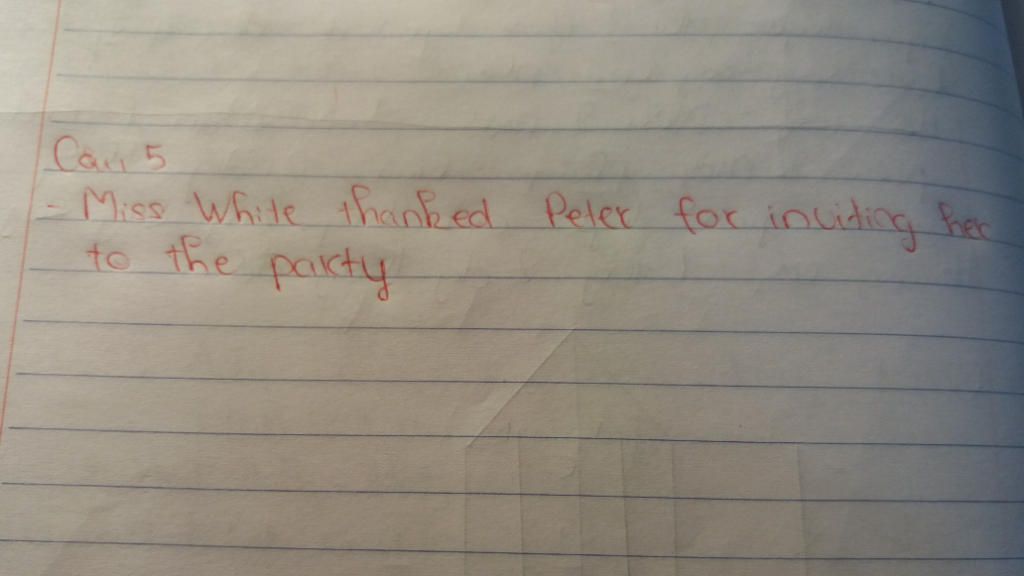 Câu 5
- Miss White thanked Peter for inviting her
to the party